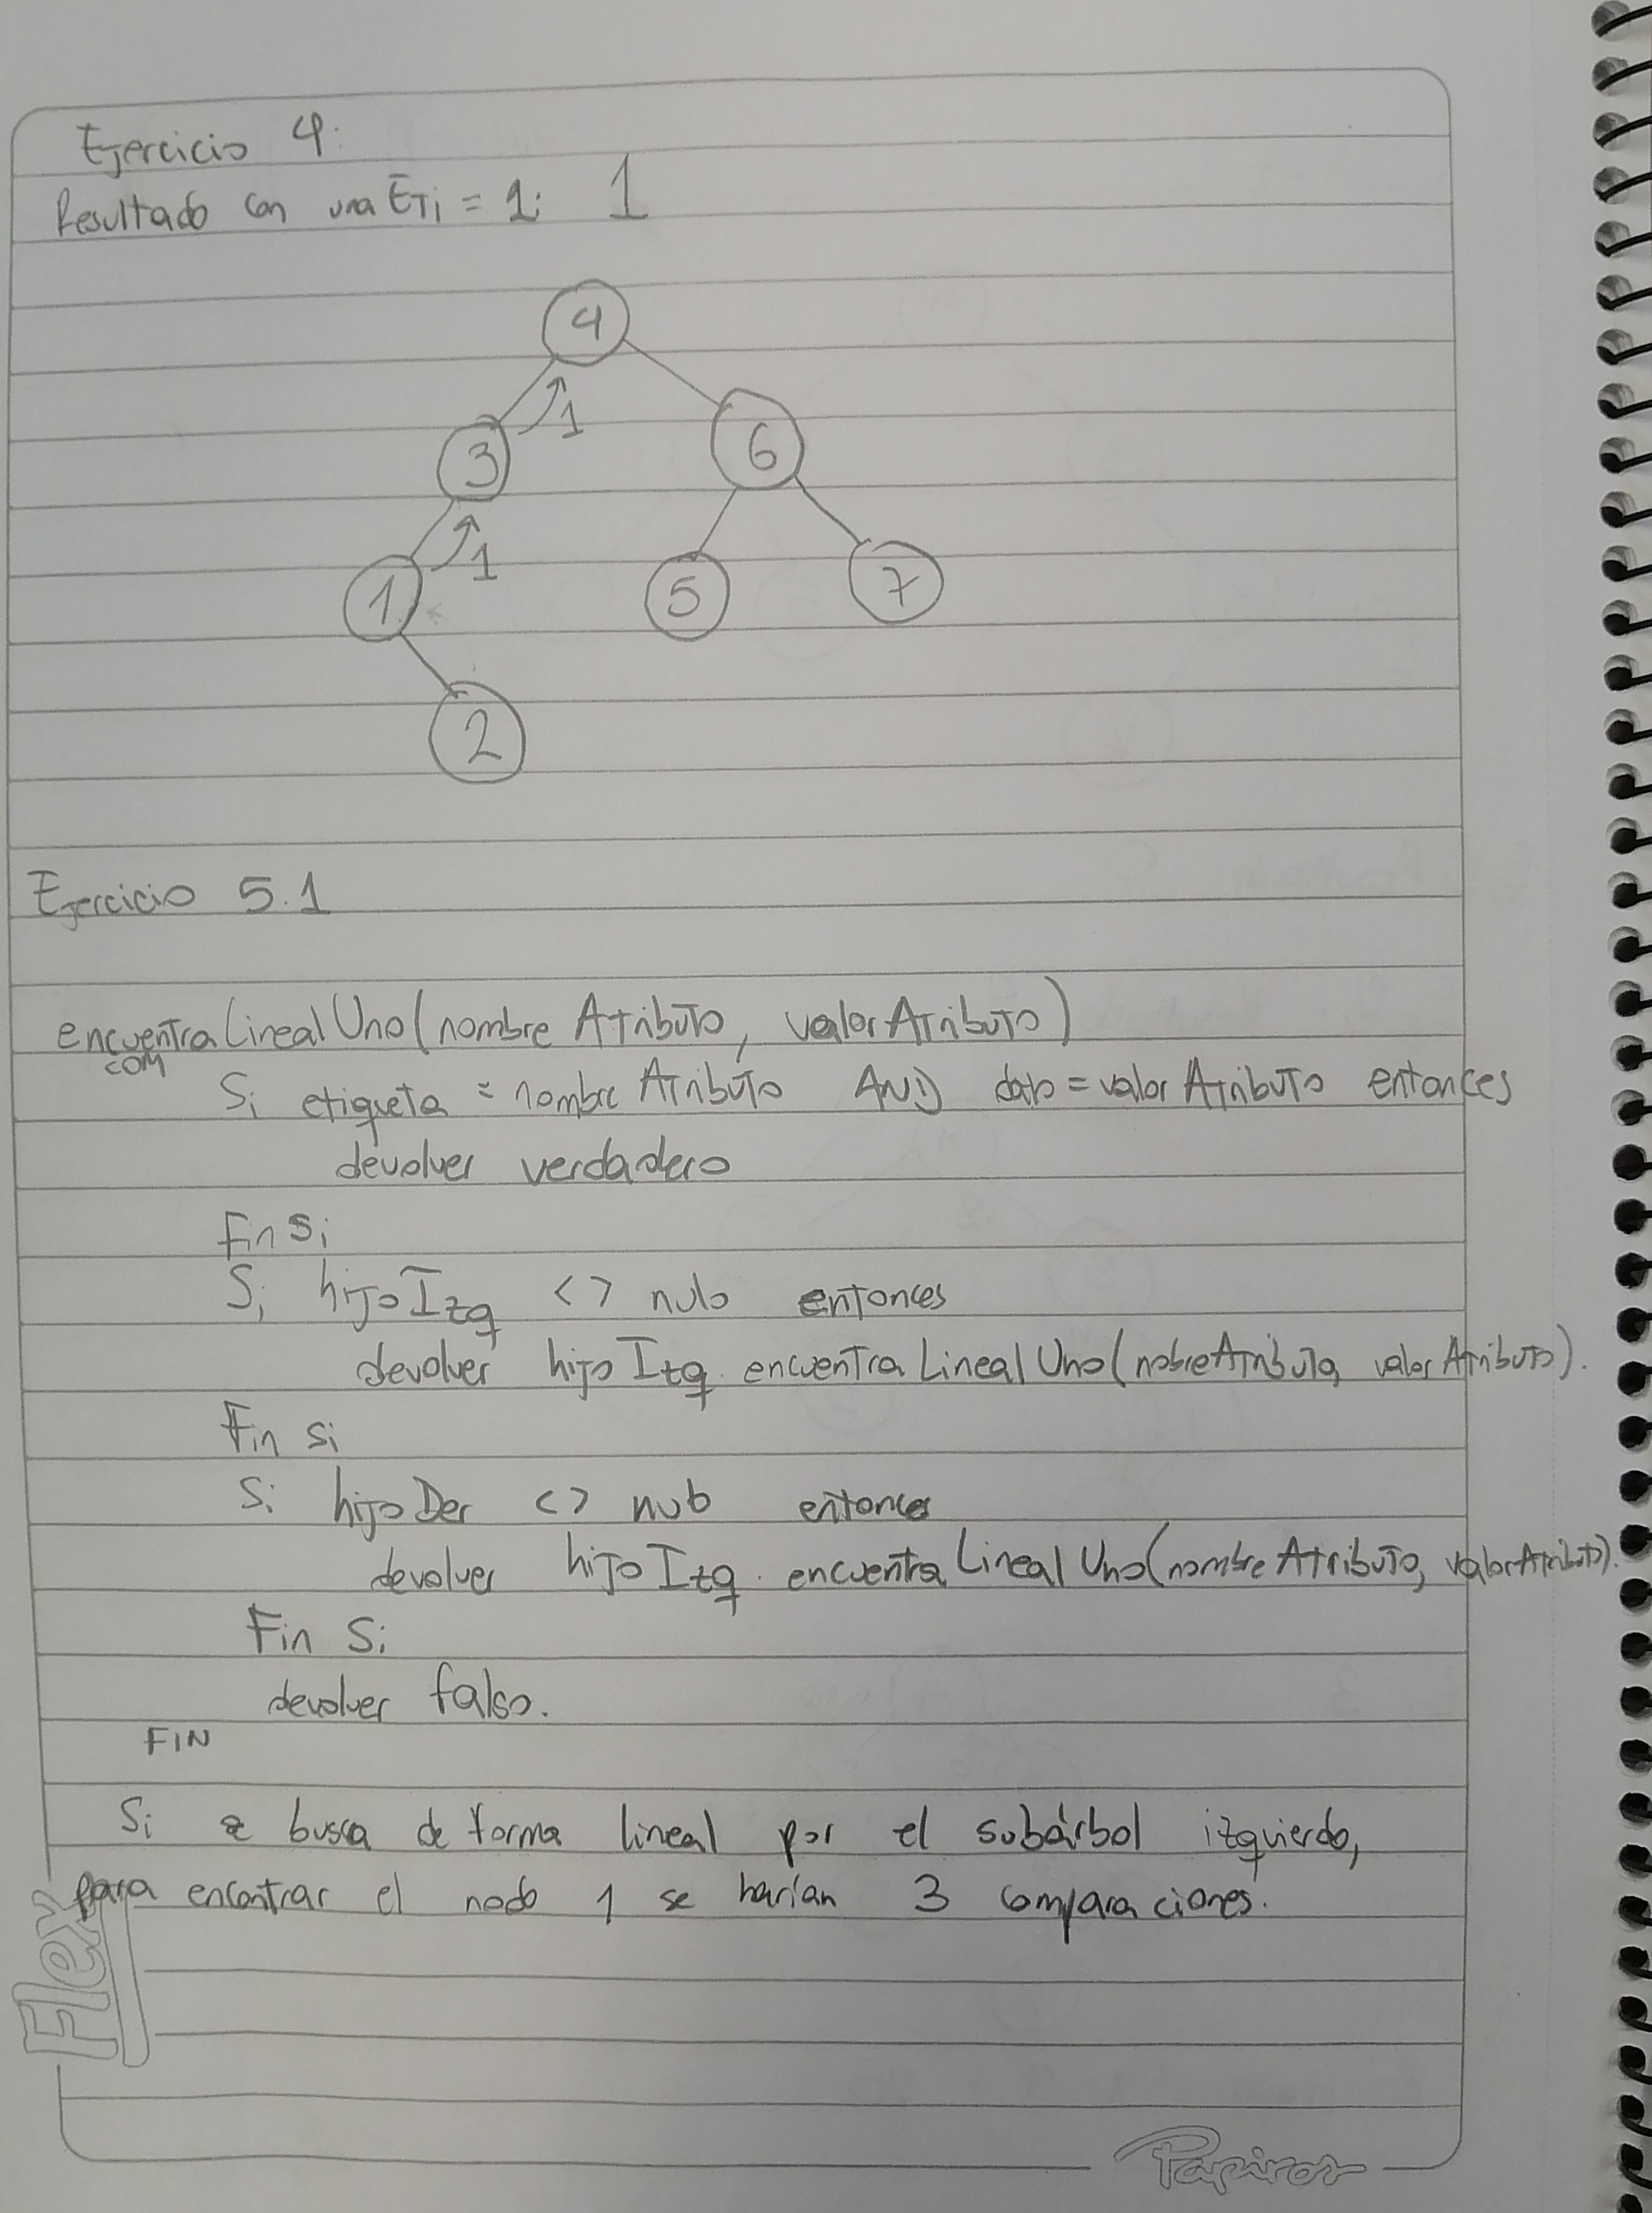 Ejercicio 4:
Resultado con una ETi = 1: 1
4
1
3
6
1
1
5
7
2
Ejercicio 5.1
encuentraLinealUno(nombre Atributo, valorAtributo)
com
Si etiqueta = nombre Atributo AND dato = valor Atributo entonces
devolver verdadero
Fin Si
Si hijoIzq <> nulo entonces
devolver hijoIzq. encuentraLinealUno(nobreAtributo, valorAtributo).
Fin si
Si hijoDer <> nulo entonces
devolver hijoIzq. encuentraLinealUno(nombreAtributo, valorAtributo).
Fin Si
devolver falso.
FIN
Si se busca de forma lineal por el subárbol izquierdo,
para encontrar el nodo 1 se harían 3 comparaciones.
Flex
Papiros